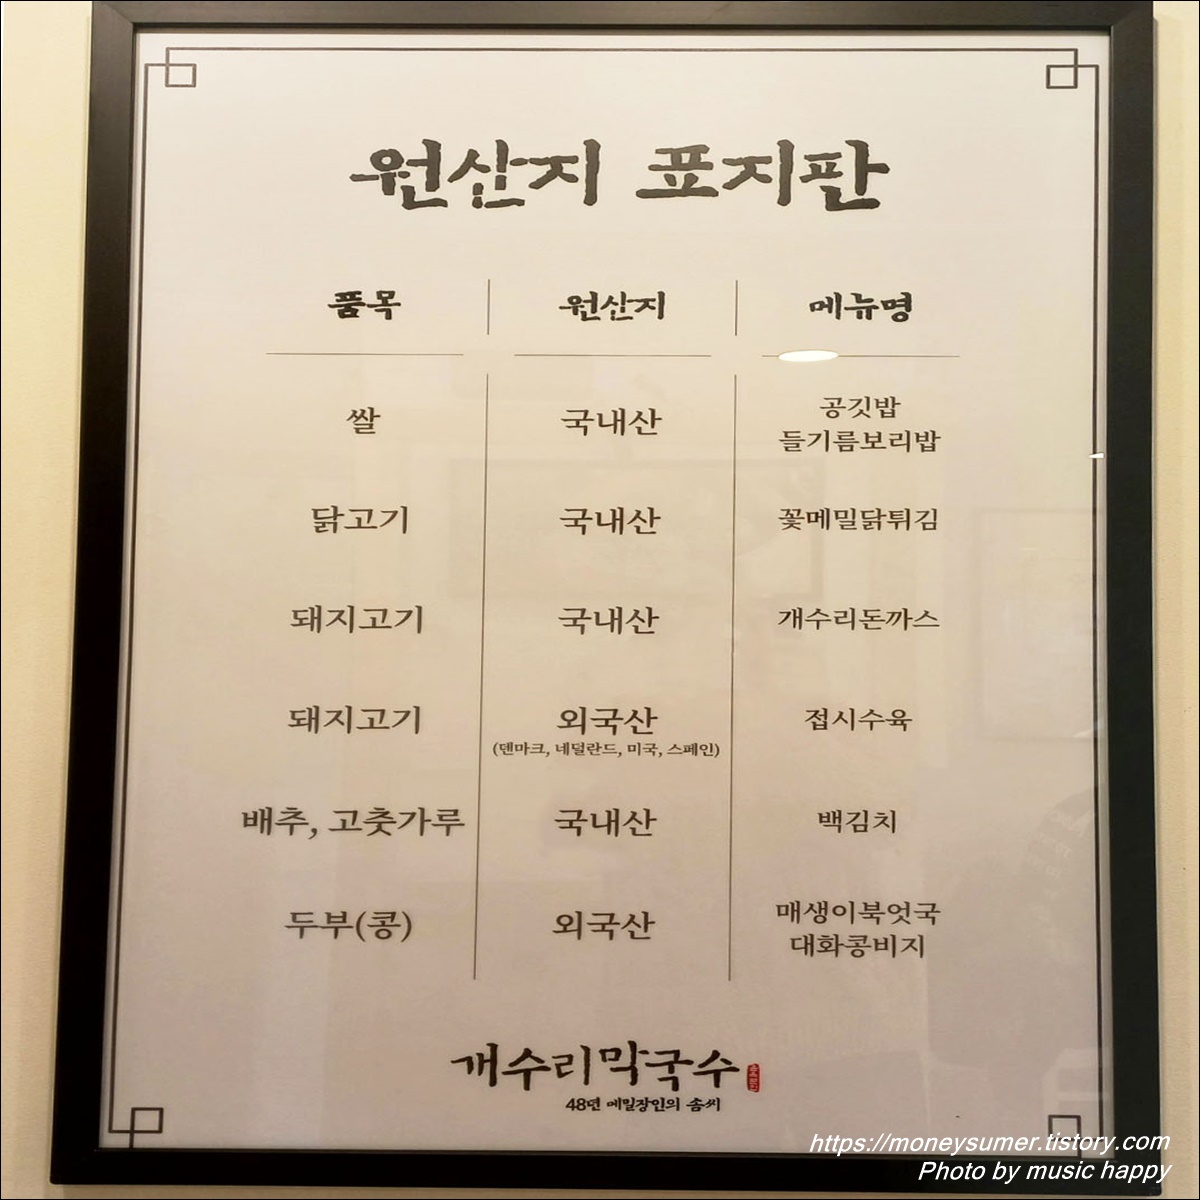 원산지 표지판
품목 원산지 메뉴명
쌀 국내산 공깃밥
들기름보리밥
닭고기 국내산 꽃메밀닭튀김
돼지고기 국내산 개수리돈까스
돼지고기 외국산 접시수육
(덴마크, 네덜란드, 미국, 스페인)
배추, 고춧가루 국내산 백김치
두부(콩) 외국산 매생이북엇국
대화콩비지
개수리막국수
48년 메밀장인의 솜씨
https://moneysumer.tistory.com
Photo by music happy